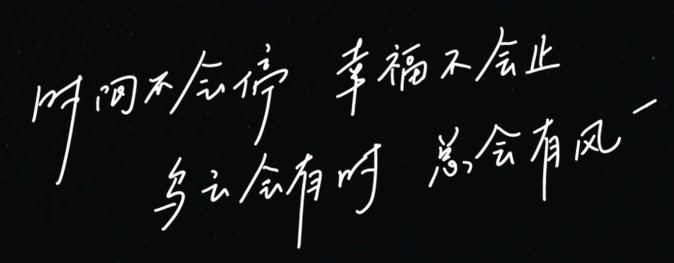 时间不会停 幸福不会止
乌云会有时 总会有风